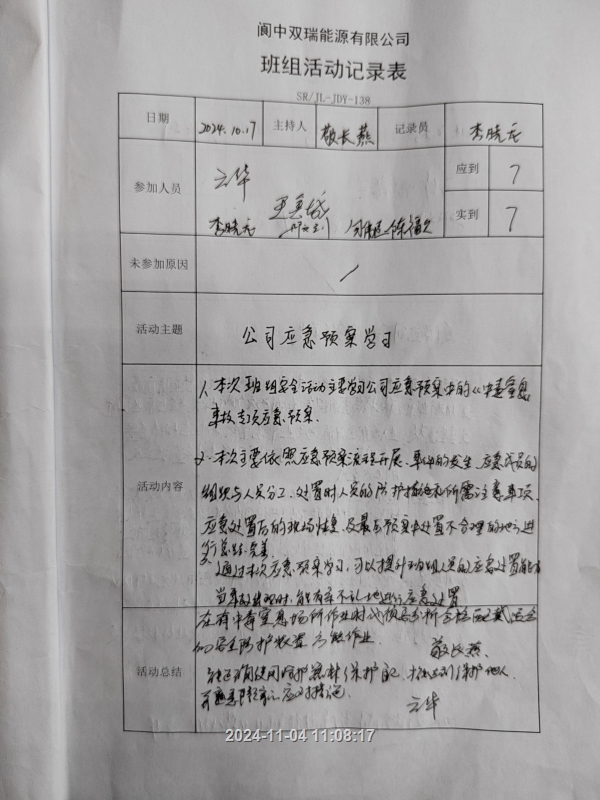 阆中双瑞能源有限公司
班组活动记录表
SR/JL-JDY-138
日期 2024.10.17 主持人 敬长燕 记录员 李晓
参加人员 云华 应到 7
李晓 实到 7
未参加原因 /
活动主题 公司应急预案学习
1、本次班组安全活动主要学习公司应急预案中的《中毒窒息
事故专项应急预案.
2、本次主要依照应急预案流程开展、事件的发生、应急成员的
活动内容 组织与人员分工、处置时人员的防护措施和所需注意事项、
应急处置后的现场恢复,及最后预案中处置不合理的地方进
行总结完善
通过本次应急预案学习,可以提升班组人员的应急处置能力
当事故出现时,能有条不乱地进行应急处置
在有中毒窒息场所作业时必须分析合格
防护 作业. 敬长燕.
活动总结 正确使用 保护 保护他人
应对措施 云华
2024-11-04 11:08:17